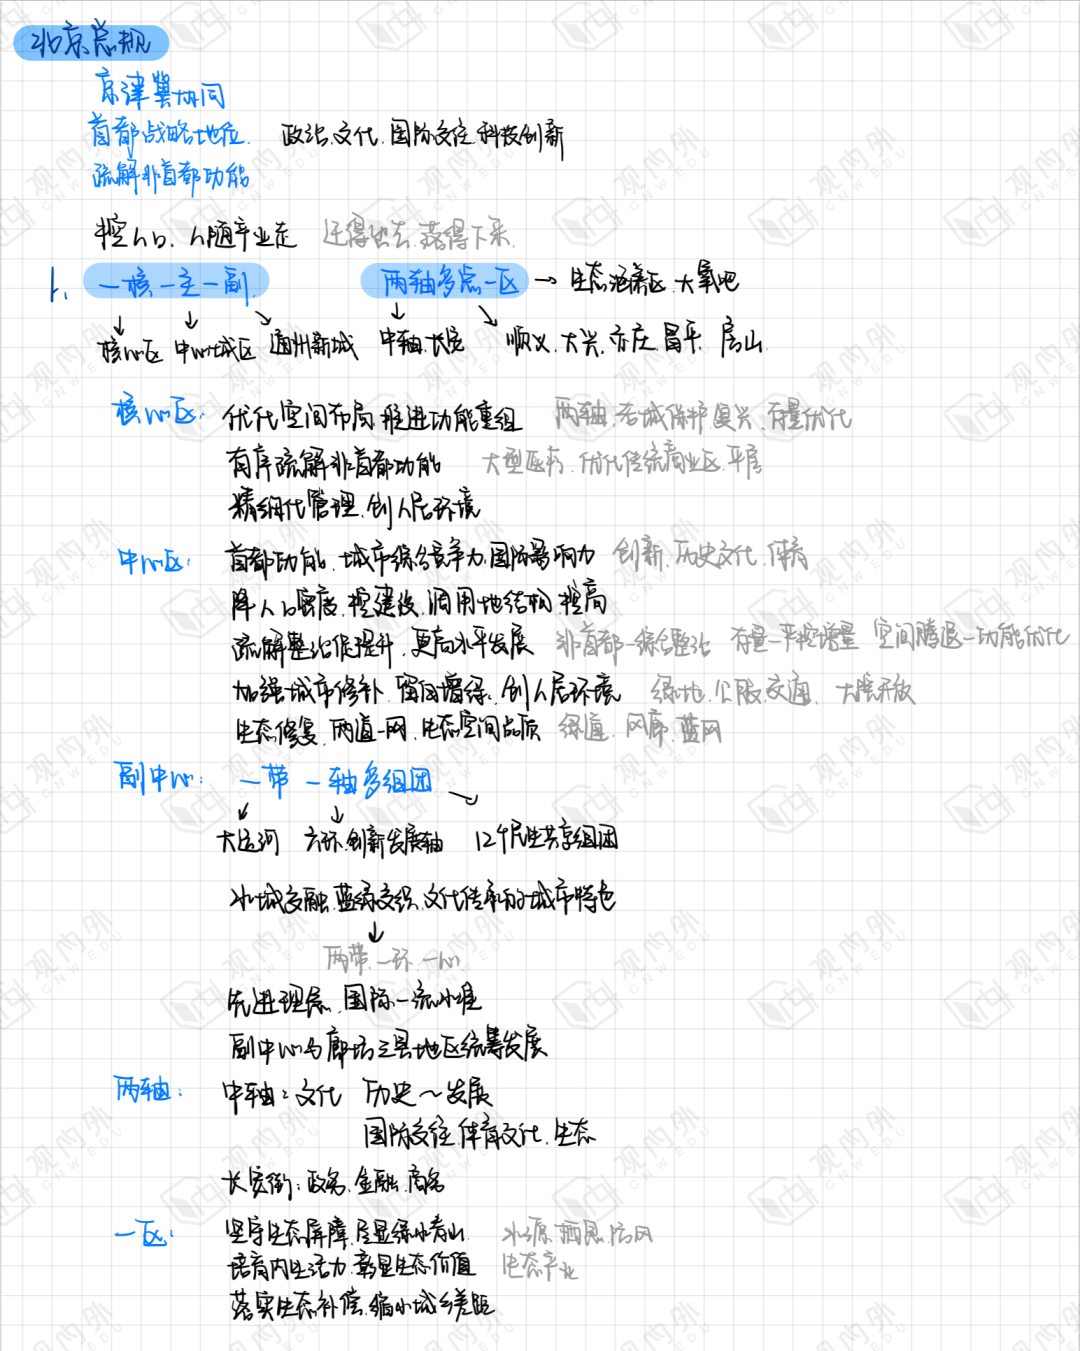 北京总规
京津冀协同
首都战略地位 政治、文化、国际交往、科技创新
疏解非首都功能
控人口、人随产业走 迁得出去、落得下来
1、一核一主一副 两轴多点一区 → 生态涵养区、大氧吧
核心区 中心城区 通州新城 中轴、长安 顺义、大兴、亦庄、昌平、房山
核心区: 优化空间布局,推进功能重组 两轴、老城保护复兴、存量优化
有序疏解非首都功能 大型医疗、优化传统商业区、平房
精细化管理、创人居环境
中心区: 首都功能、城市综合竞争力、国际影响力 创新、历史文化、体育
降人口密度、控建设、调用地结构、控高
疏解整治促提升,更高水平发展 非首都-综合整治 存量-平控增量 空间腾退-功能优化
加强城市修补、留白增绿、创人居环境 绿地、公服、交通、大院开放
生态修复、两道一网、生态空间品质 绿道、风廊、蓝网
副中心: 一带一轴多组团
大运河 六环创新发展轴 12个民生共享组团
水城交融、蓝绿交织、文化传承的城市特色
两带、一环、一心
先进理念、国际一流水准
副中心与廊坊三县地区统筹发展
两轴: 中轴:文化 历史~发展
国际交往、体育文化、生态
长安街:政务、金融、商务
一区: 坚守生态屏障,尽显绿水青山 水源、栖息、防风
培育内生活力,彰显生态价值 生态产业
落实生态补偿,缩小城乡差距
观内外
GNWEDU